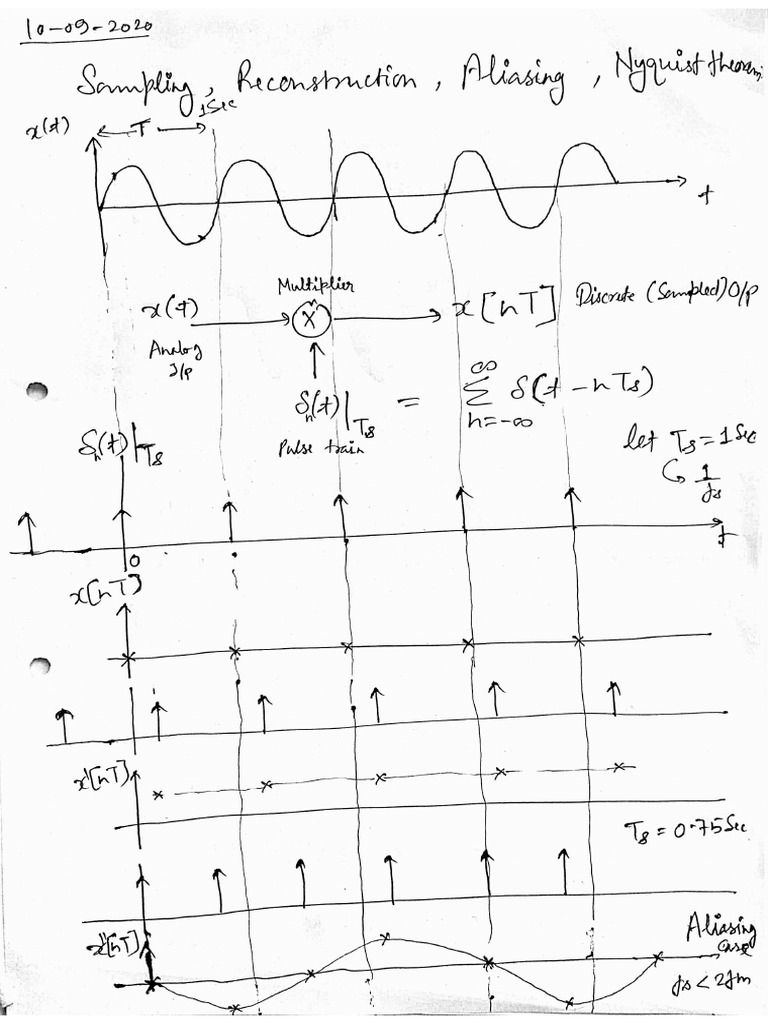 10-09-2020
Sampling, Reconstruction, Aliasing, Nyquist theorem
1 Sec
x(t)
T
t
Multiplier
x(t)
X
x[nT] Discrete (Sampled) O/p
Analog
I/p
δₙ(t)|Ts = ∞Σn=-∞ δ(t - nTs)
Pulse train
let Ts = 1 Sec
↳ 1/fs
δₙ(t)|Ts
t
0
x[nT]
x'[nT]
Ts = 0.75 Sec
x''[nT]
Aliasing
case
fs < 2fm